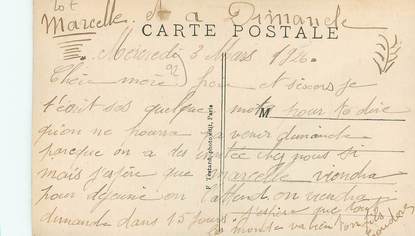 Lot
Marcelle et a Dimanche
CARTE POSTALE
Mercredi 3 Mars 192
Chère mère frère et sœurs je
t'écrit ses quelque mots pour te dire
qu'on ne pourra venir dimanche
parceque on a des chez nous si
mais j'espère que Marcelle viendra
pour déjeuné on l'attend on viendra
dimanche dans 15 jours j'espère que tout
le monde va bien
Paris